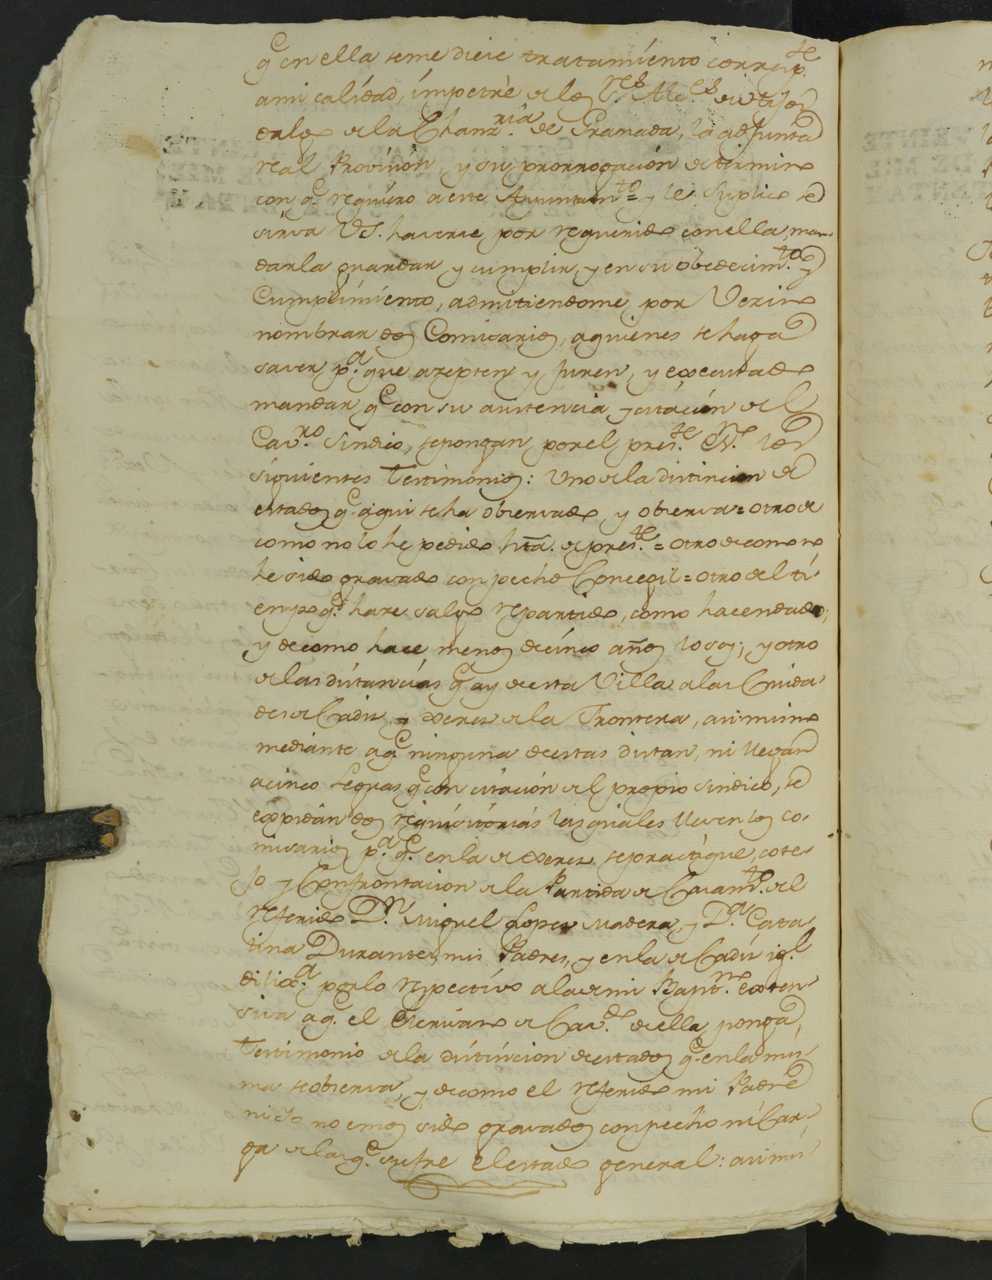 q.e en ella seme diese tratamiento corresp.te
ami calidad, impetrè de los S.res Alc.es de Hijos
dalgo de la Chanz.ria de Granada, la adjunta
real Provision, y su prorrogacion de termino
con q.e requiero a este Ayuntam.to = y le suplico se
sirva VS. haverse por requerido con ella man
darla guardar y cumplir, y en su obedecim.to y
Cumplimiento, admitiendome, por Vezino
nombrar dos Comisarios, aquienes se haga
saver, p.a que azepten y Juren, y executado
mandar q.e con su asistencia y citacion del
Cav.ro Sindico, se pongan por el pres.te Es.no los
siguientes Testimonios: Uno de la distincion de
estados q.e aqui se ha observado y observa = otro de
como no lo he pedido hta. de pres.te = otro de como no
he sido gravado con pecho Concegil = otro del ti
empo q.e hace salgo repartido, como hacendado;
y de como hace menos de cinco años lo soy; y otro
de las distancias q.e ay de esta Villa a las Ciuda
des de Cadiz, y Xerez de la Frontera, asimismo
mediante a q.e ninguna de estas distan, ni llegan
a cinco leguas q.e con citacion del propio sindico, se
expidan dos requisitorias las quales lleven los co
misarios p.a q.e en la de Xerez se practique, cote
jo y Confrontacion de la Partida de Casam.to del
referido D.n Miguel Lopez Madera, y D.a Cata
lina Durante, mis Padres, y en la de Cadiz ig.l
dilig.a por lo respectivo a la de mi Bapt.mo exten
siva a q.e el Escrivano de Cav.do de ella, ponga,
Testimonio de la distincion de estados q.e en la mis
ma se observa, y de como el referido mi Padre
ni Yo no emos sido gravados con pecho ni Car
ga de las q.e sufre el estado general: asimis